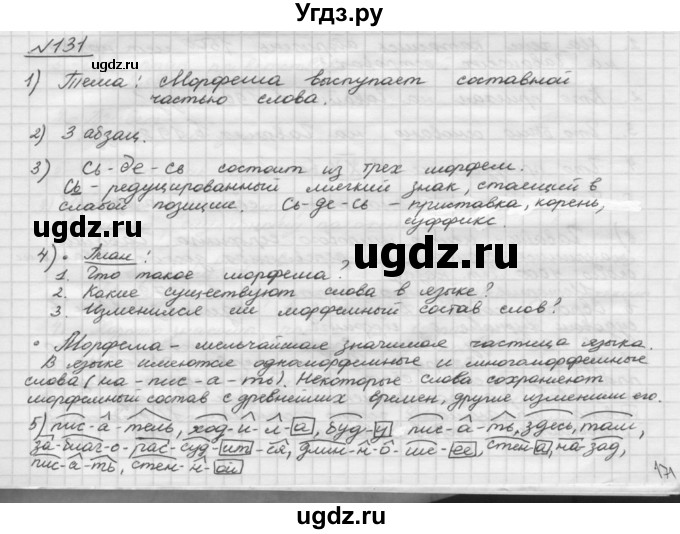 Угдз.ру
№131
ugdz.ru
1) Тема: Морфема выступает составной
частью слова.
2) 3 абзац.
3) Сь-де-сь состоит из трех морфем.
Сь - редуцированный мягкий знак, стоящий в
слабой позиции. Сь-де-сь - приставка, корень,
суффикс.
ugdz.ru
4) • План:
1. Что такое морфема?
2. Какие существуют слова в языке?
3. Изменился ли морфемный состав слов?
• Морфема - мельчайшая значимая частица языка.
В языке имеются одноморфемные и многоморфемные
слова (на-пис-а-ть). Некоторые слова сохраняют
морфемный состав с древнейших времен, другие изменили его.
5) пис-а-тель, ход-и-л-а, буд-у пис-а-ть, здесь, там,
за-благ-о-рас-суд-ит-ся, длин-н-о-ше-ее, стен-а, на-зад,
пис-а-ть, стен-н-ой
171
ugdz.ru
ugdz.ru